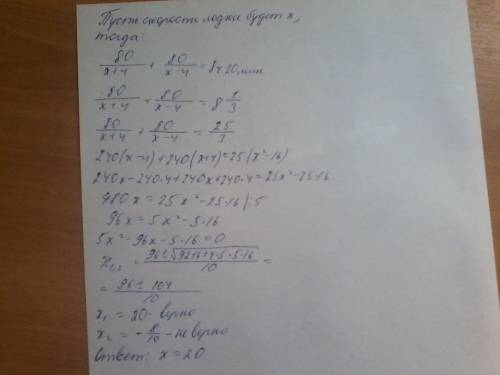 Пусть скорость лодки будет x,
тогда:
80/(x+4) + 80/(x-4) = 8ч 20мин
80/(x+4) + 80/(x-4) = 8 1/3
80/(x+4) + 80/(x-4) = 25/3
240(x-4)+240(x+4)=25(x²-16)
240x-240·4+240x+240·4=25x²-25·16
480x=25x²-25·16 |:5
96x=5x²-5·16
5x²-96x-5·16=0
x₁,₂ = (96±√(9216+4·5·5·16))/10 =
= (96±104)/10
x₁ = 20 - верно
x₂ = -8/10 - не верно
ответ: x=20